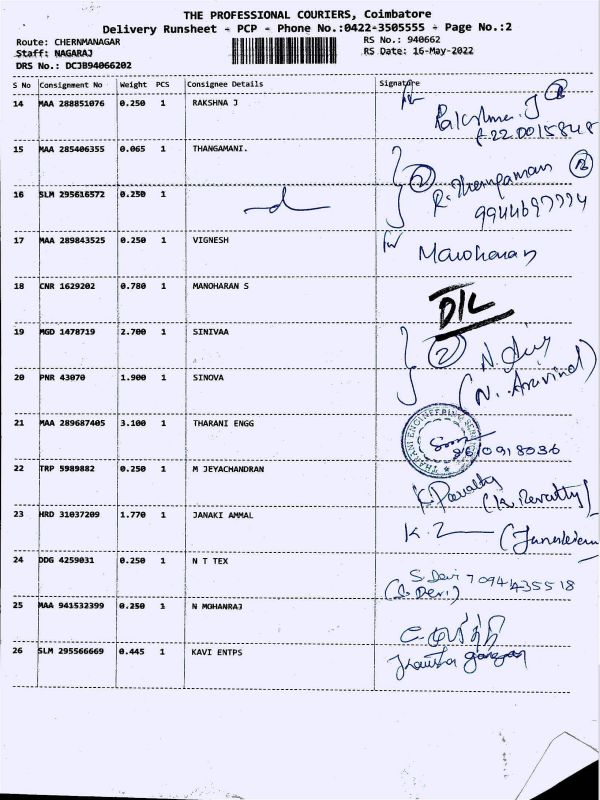 THE PROFESSIONAL COURIERS, Coimbatore
Delivery Runsheet - PCP - Phone No.:0422-3505555 - Page No.:2
Route: CHERNMANAGAR RS No.: 940662
Staff: NAGARAJ RS Date: 16-May-2022
DRS No.: DCJB94066202
S No Consignment No Weight PCS Consignee Details Signature
14 MAA 288851076 0.250 1 RAKSHNA J
15 MAA 285406355 0.065 1 THANGAMANI. 2
16 SLM 295616572 0.250 1
9944697774
17 MAA 289843525 0.250 1 VIGNESH for Manoharan
18 CNR 1629202 0.780 1 MANOHARAN S D/L
19 MGD 1478719 2.700 1 SINIVAA 2
20 PNR 43070 1.900 1 SINOVA (N. Aravind)
21 MAA 289687405 3.100 1 THARANI ENGG
THARANI ENGINEERING
22 TRP 5989882 0.250 1 M JEYACHANDRAN
23 HRD 31037209 1.770 1 JANAKI AMMAL
24 DDG 4259031 0.250 1 N T TEX S. Devi 7094435518
(S. Devi)
25 MAA 941532399 0.250 1 N MOHANRAJ
26 SLM 295566669 0.445 1 KAVI ENTPS